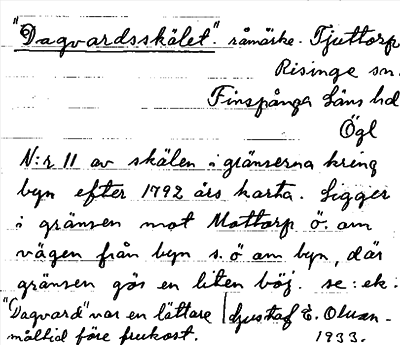 "Dagvardsskälet". råmärke. Tjuttorp
Risinge sn.
Finspånga Läns hd
Ögl
N:r 11 av skälen i gränserna kring
byn efter 1792 års karta. Ligger
i gränsen mot Mottorp ö. om
vägen från byn s. ö om byn, där
gränsen gös en liten böj. se: ek.
"Dagvard" var en lättare
måltid före frukost.
Gustaf E. Olsson.
1933.